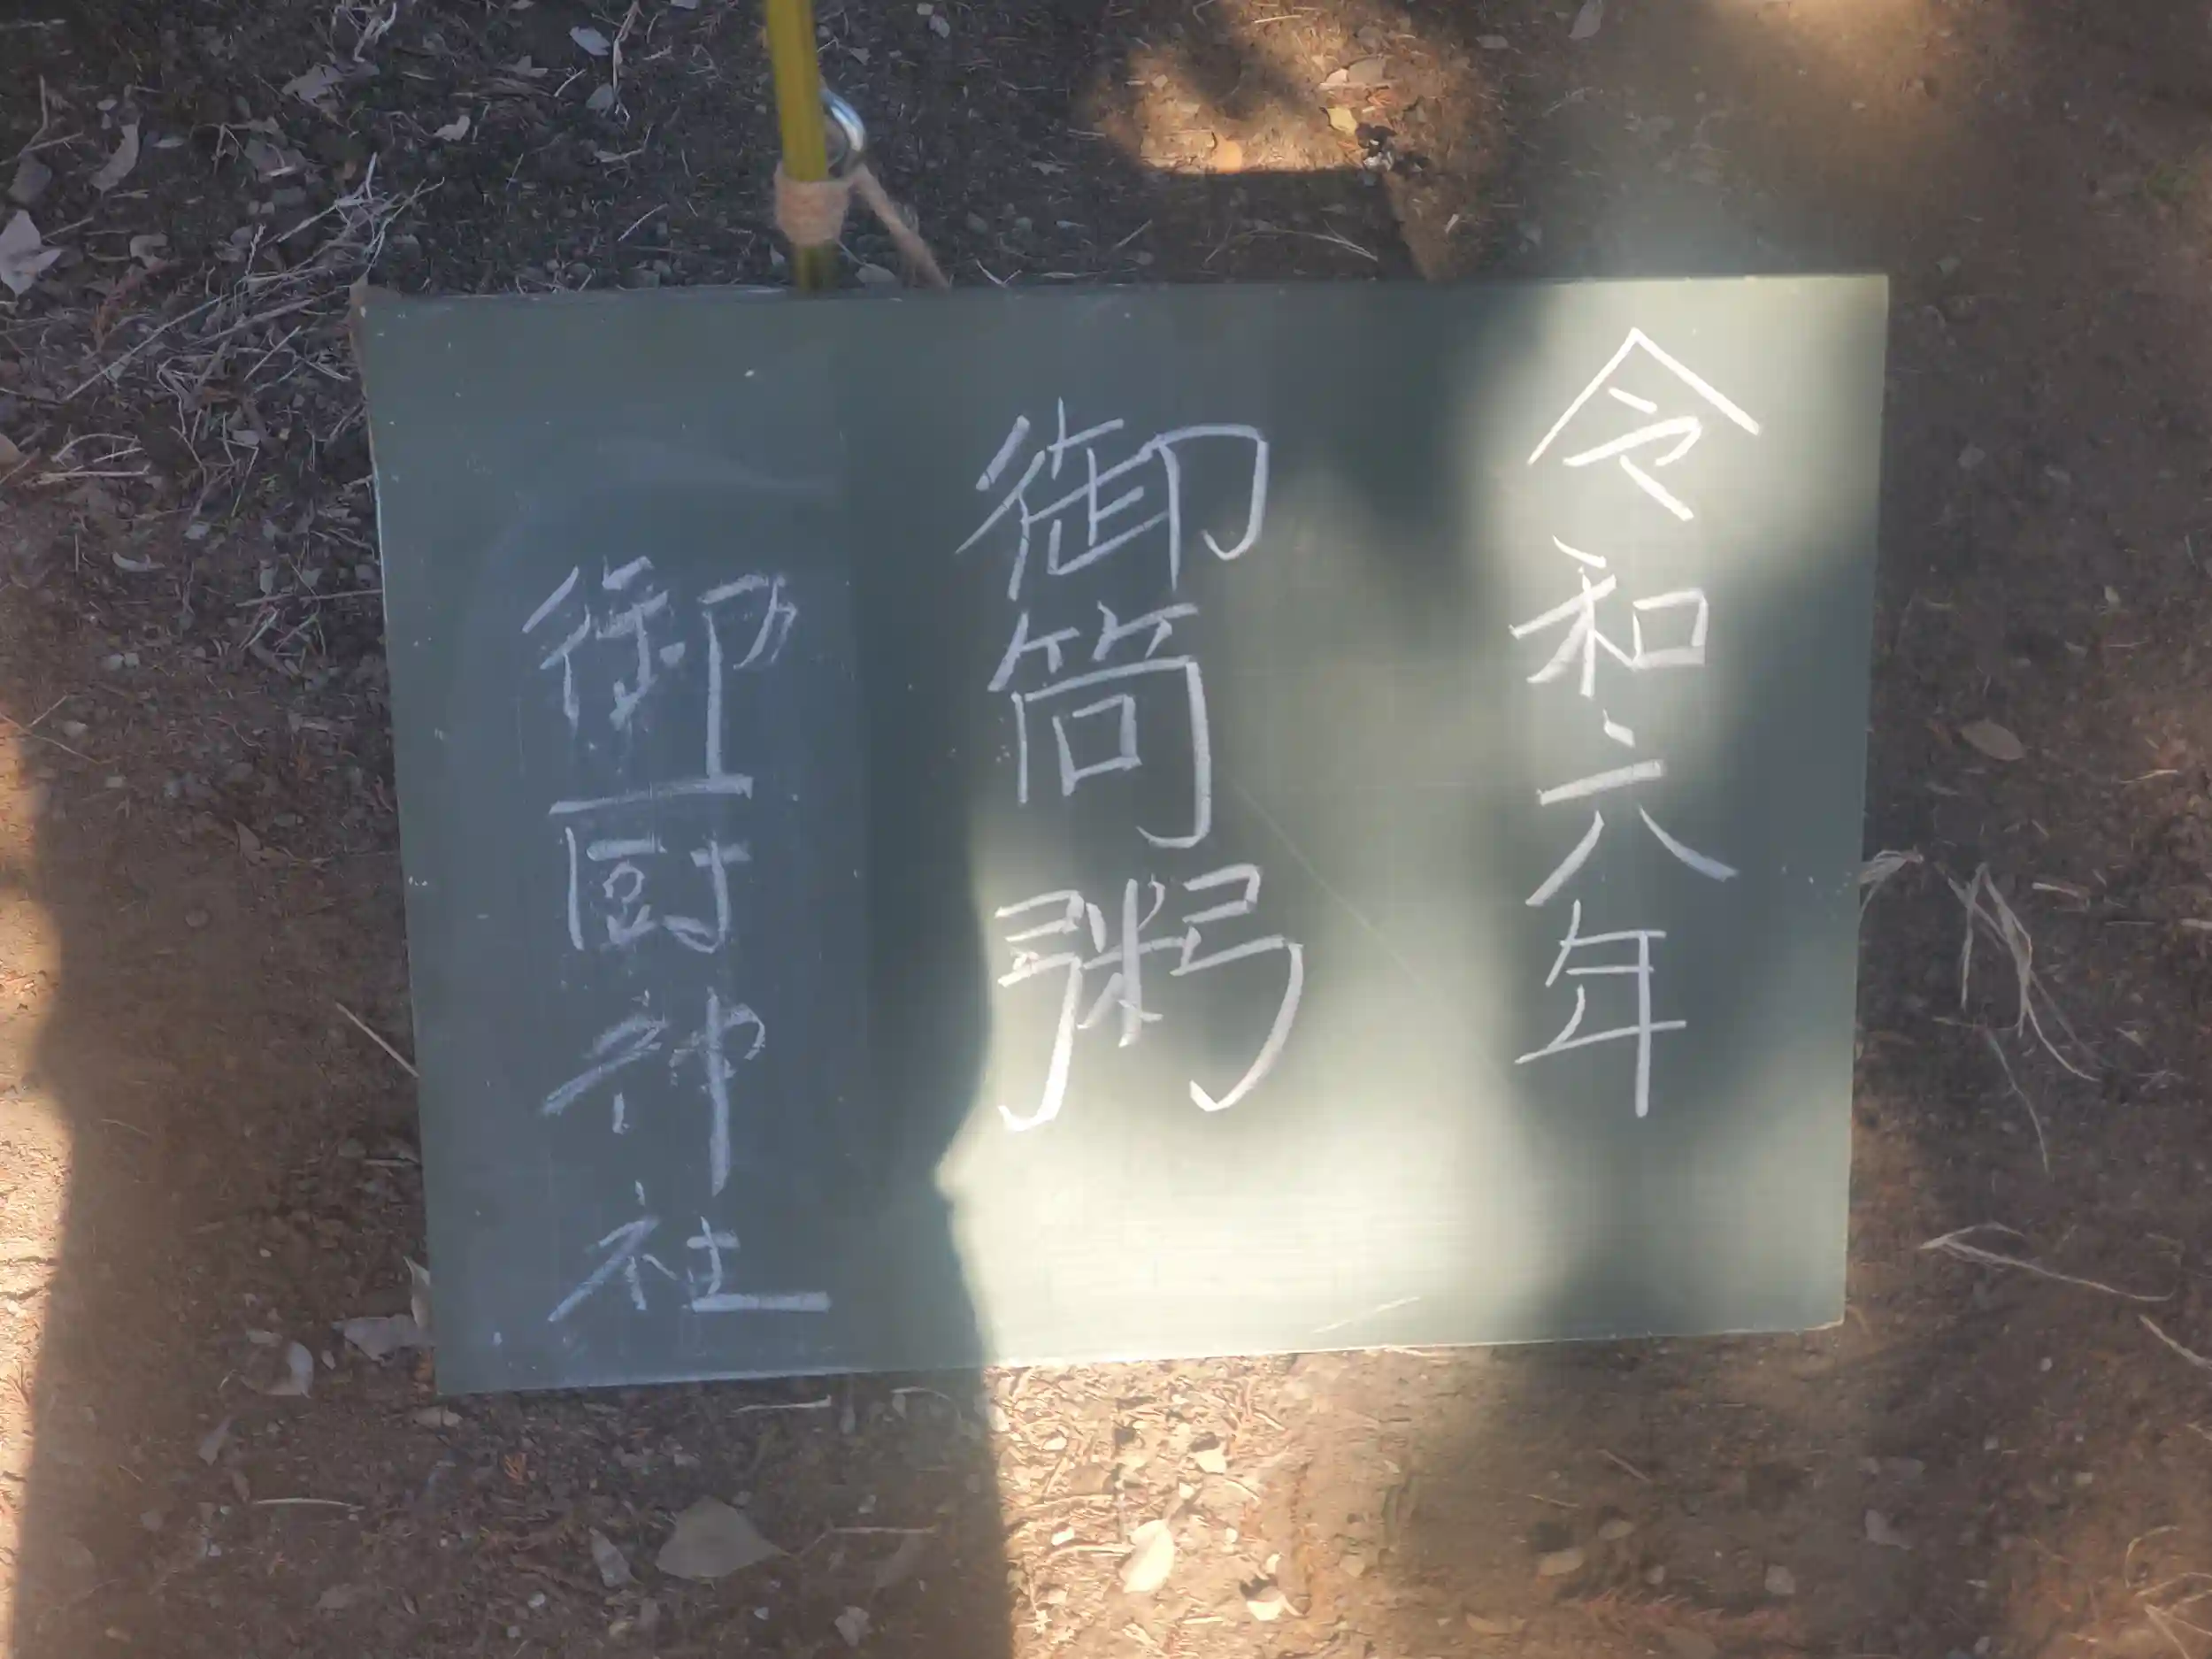 令和六年
御筒粥
御厨神社